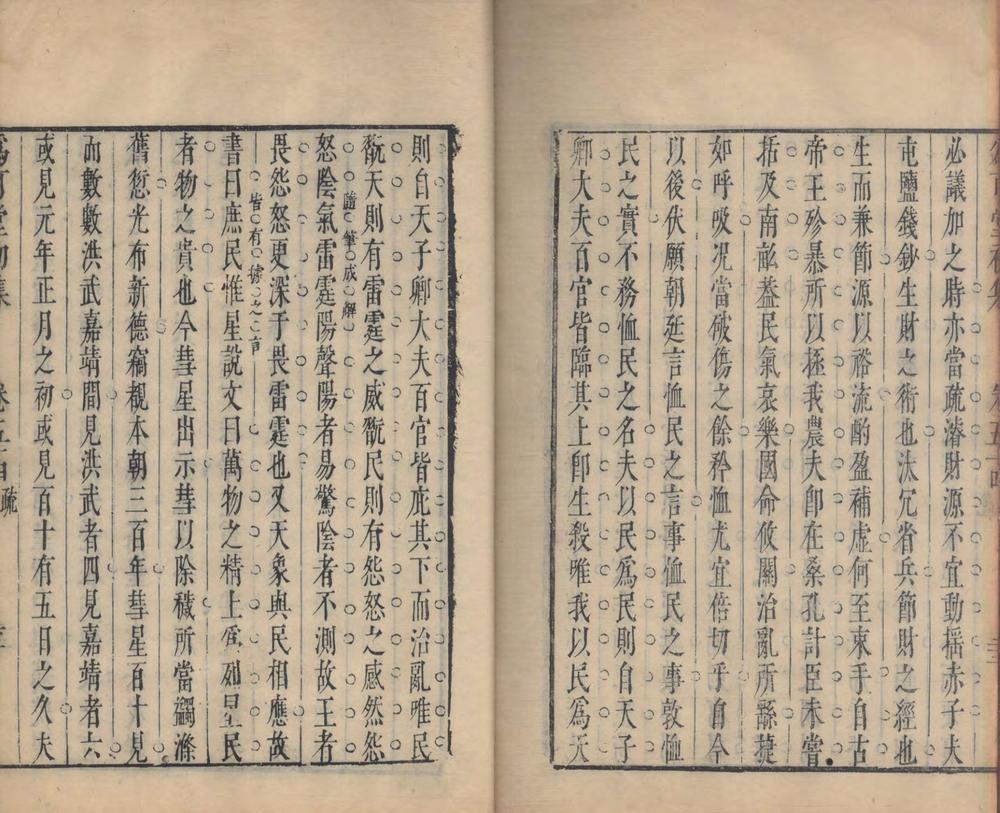 必議加之時亦當疏濬財源不宜動搖赤子夫
屯鹽錢鈔生財之術也汰冗省兵節財之經也
生而兼節源以裕流酌盈補虛何至束手自古
帝王殄暴所以拯我農夫卽在桑孔計臣未嘗
括及南畝葢民氣哀樂國命攸關治亂所繇捷
如呼吸况當破傷之餘矜恤尤宜倍切乎自今
以後伏願朝廷言恤民之言事恤民之事敦恤
民之實不務恤民之名夫以民爲民則自天子
卿大夫百官皆臨其上卽生殺唯我以民爲天
則自天子卿大夫百官皆庇其下而治亂唯民
翫天則有雷霆之威翫民則有怨怒之感然怨
隨筆成解
怒陰氣雷霆陽聲陽者易驚陰者不測故王者
畏怨怒更深于畏雷霆也又天象與民相應故
皆有據之言
書曰庶民惟星說文曰萬物之精上爲列星民
者物之貴也今彗星出示彗以除穢所當蠲滌
舊愆光布新德竊覩本朝三百年彗星百十見
而數數洪武嘉靖間見洪武者四見嘉靖者六
或見元年正月之初或見百十有五日之久夫